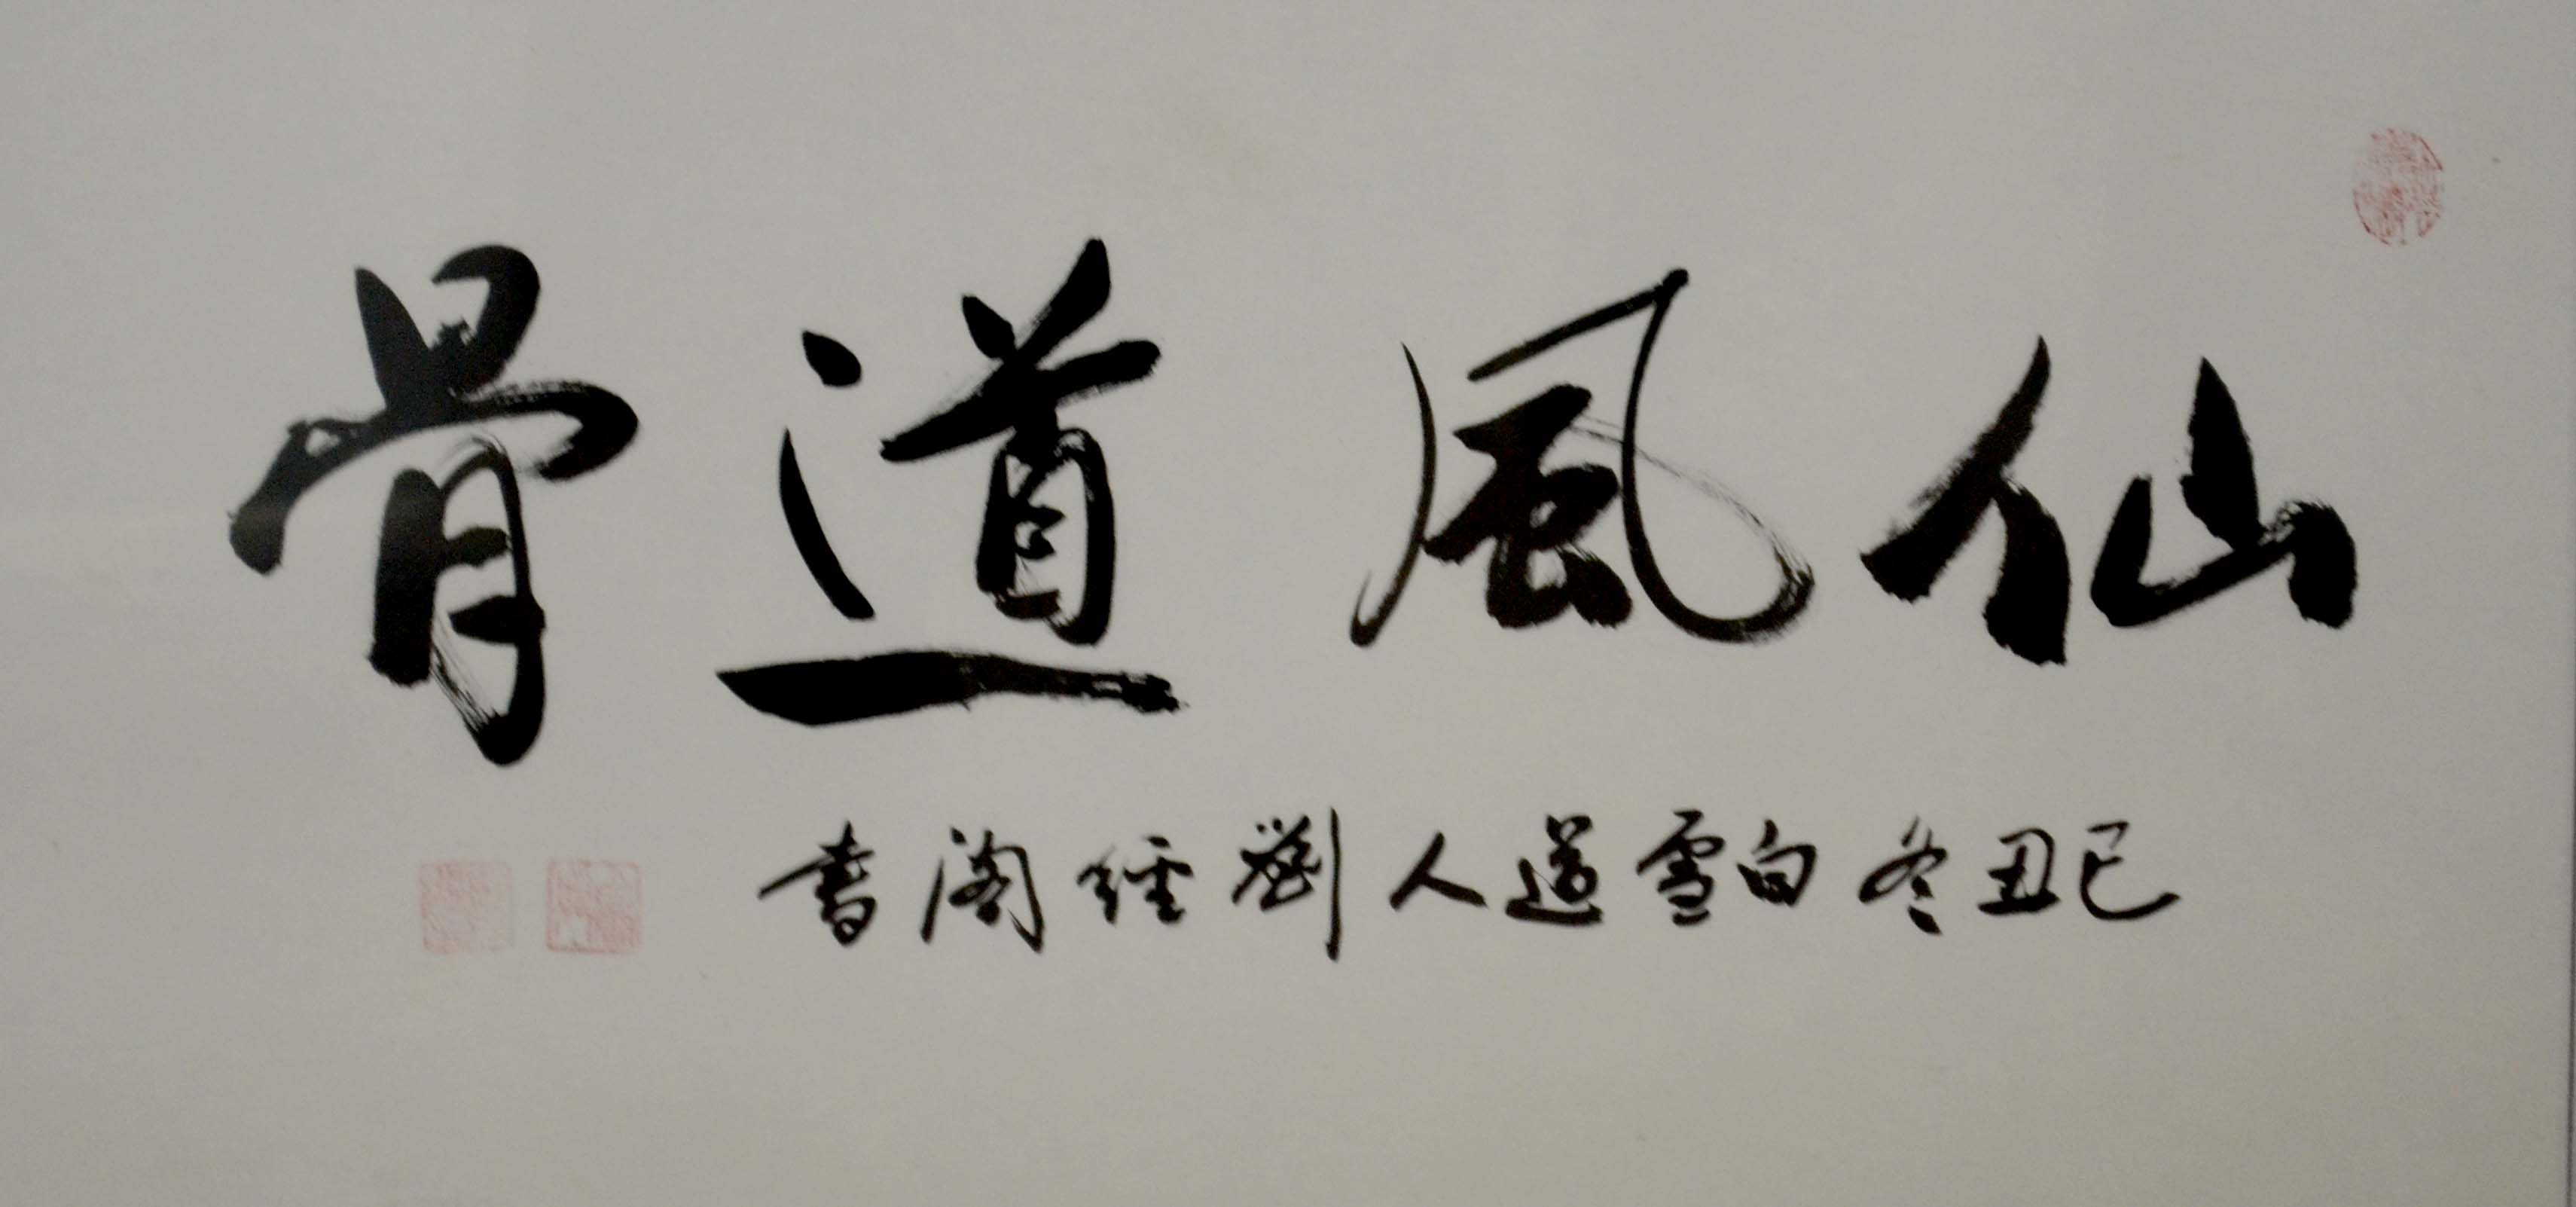 仙風道骨
己丑冬白雪道人劉經閣書